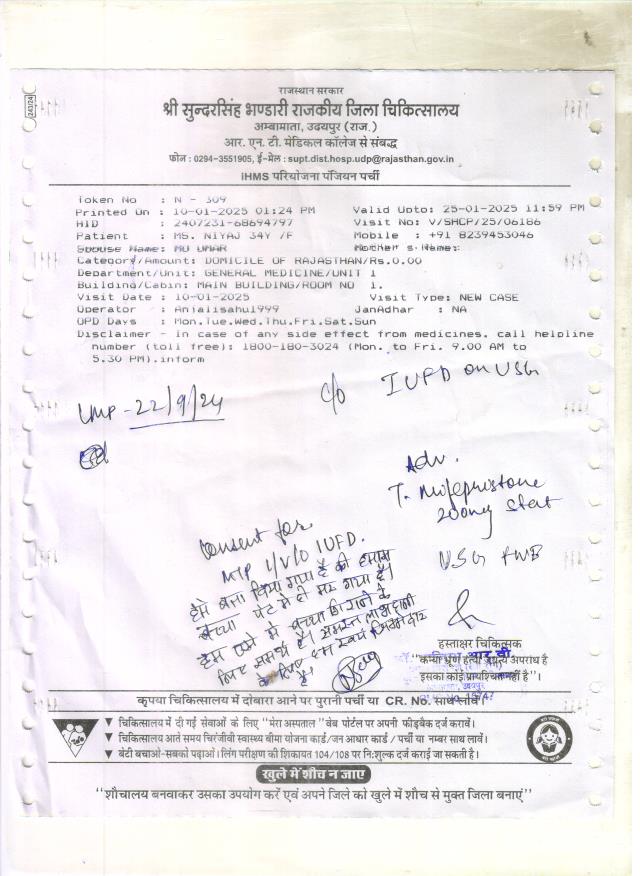 241/24
राजस्थान सरकार
श्री सुन्दरसिंह भण्डारी राजकीय जिला चिकित्सालय
अम्बामाता, उदयपुर (राज.)
आर. एन. टी. मेडिकल कॉलेज से संबद्ध
फोन : 0294-3551905, ई-मेल : supt.dist.hosp.udp@rajasthan.gov.in
IHMS परियोजना पंजियन पर्ची
Token No : N - 309
Printed On : 10-01-2025 01:24 PM Valid Upto: 25-01-2025 11:59 PM
HID : 2407231-68694797 Visit No: V/SHCP/25/06186
Patient : MS. NIYAJ 34Y /F Mobile : +91 8239453046
Spouse Name: MU UMAR Mother's Name:
Category/Amount: DOMICILE OF RAJASTHAN/Rs.0.00
Department/Unit: GENERAL MEDICINE/UNIT 1
Building/Cabin: MAIN BUILDING/ROOM NO 1.
Visit Date : 10-01-2025 Visit Type: NEW CASE
Operator : Anjalisahu1999 JanAdhar : NA
OPD Days : Mon.Tue.Wed.Thu.Fri.Sat.Sun
Disclaimer - In case of any side effect from medicines, call helpline
number (toll free): 1800-180-3024 (Mon. to Fri. 9.00 AM to
5.30 PM).inform
c/o IUFD on USG
LMP - 22/9/24
Adv.
T. Mifepristone
200mg Stat
USG FWB
Consent for
MTP i/v/o IUFD.
हमे बता दिया गया है की हमारा
बच्चा पेट मे ही मर गया है।
हम एसे मे बच्चा गिराने के
लिए समर्थ है। समस्त लाभ हानी
के लिए हम स्वयं जिम्मेदार
है।
हस्ताक्षर चिकित्सक
"कन्या भ्रूण हत्या जघन्य अपराध है
इसका कोई प्रायश्चित नहीं है"।
उदयपुर
कृपया चिकित्सालय में दोबारा आने पर पुरानी पर्ची या CR. No. साथ लावें।
▼ चिकित्सालय में दी गई सेवाओं के लिए "मेरा अस्पताल" वेब पोर्टल पर अपनी फीडबैक दर्ज करावें।
▼ चिकित्सालय आते समय चिरंजीवी स्वास्थ्य बीमा योजना कार्ड/जन आधार कार्ड / पर्ची या नम्बर साथ लावें।
▼ बेटी बचाओ-सबको पढ़ाओ। लिंग परीक्षण की शिकायत 104/108 पर नि:शुल्क दर्ज कराई जा सकती है।
खुले में शौच न जाए
"शौचालय बनवाकर उसका उपयोग करें एवं अपने जिले को खुले में शौच से मुक्त जिला बनाएं"